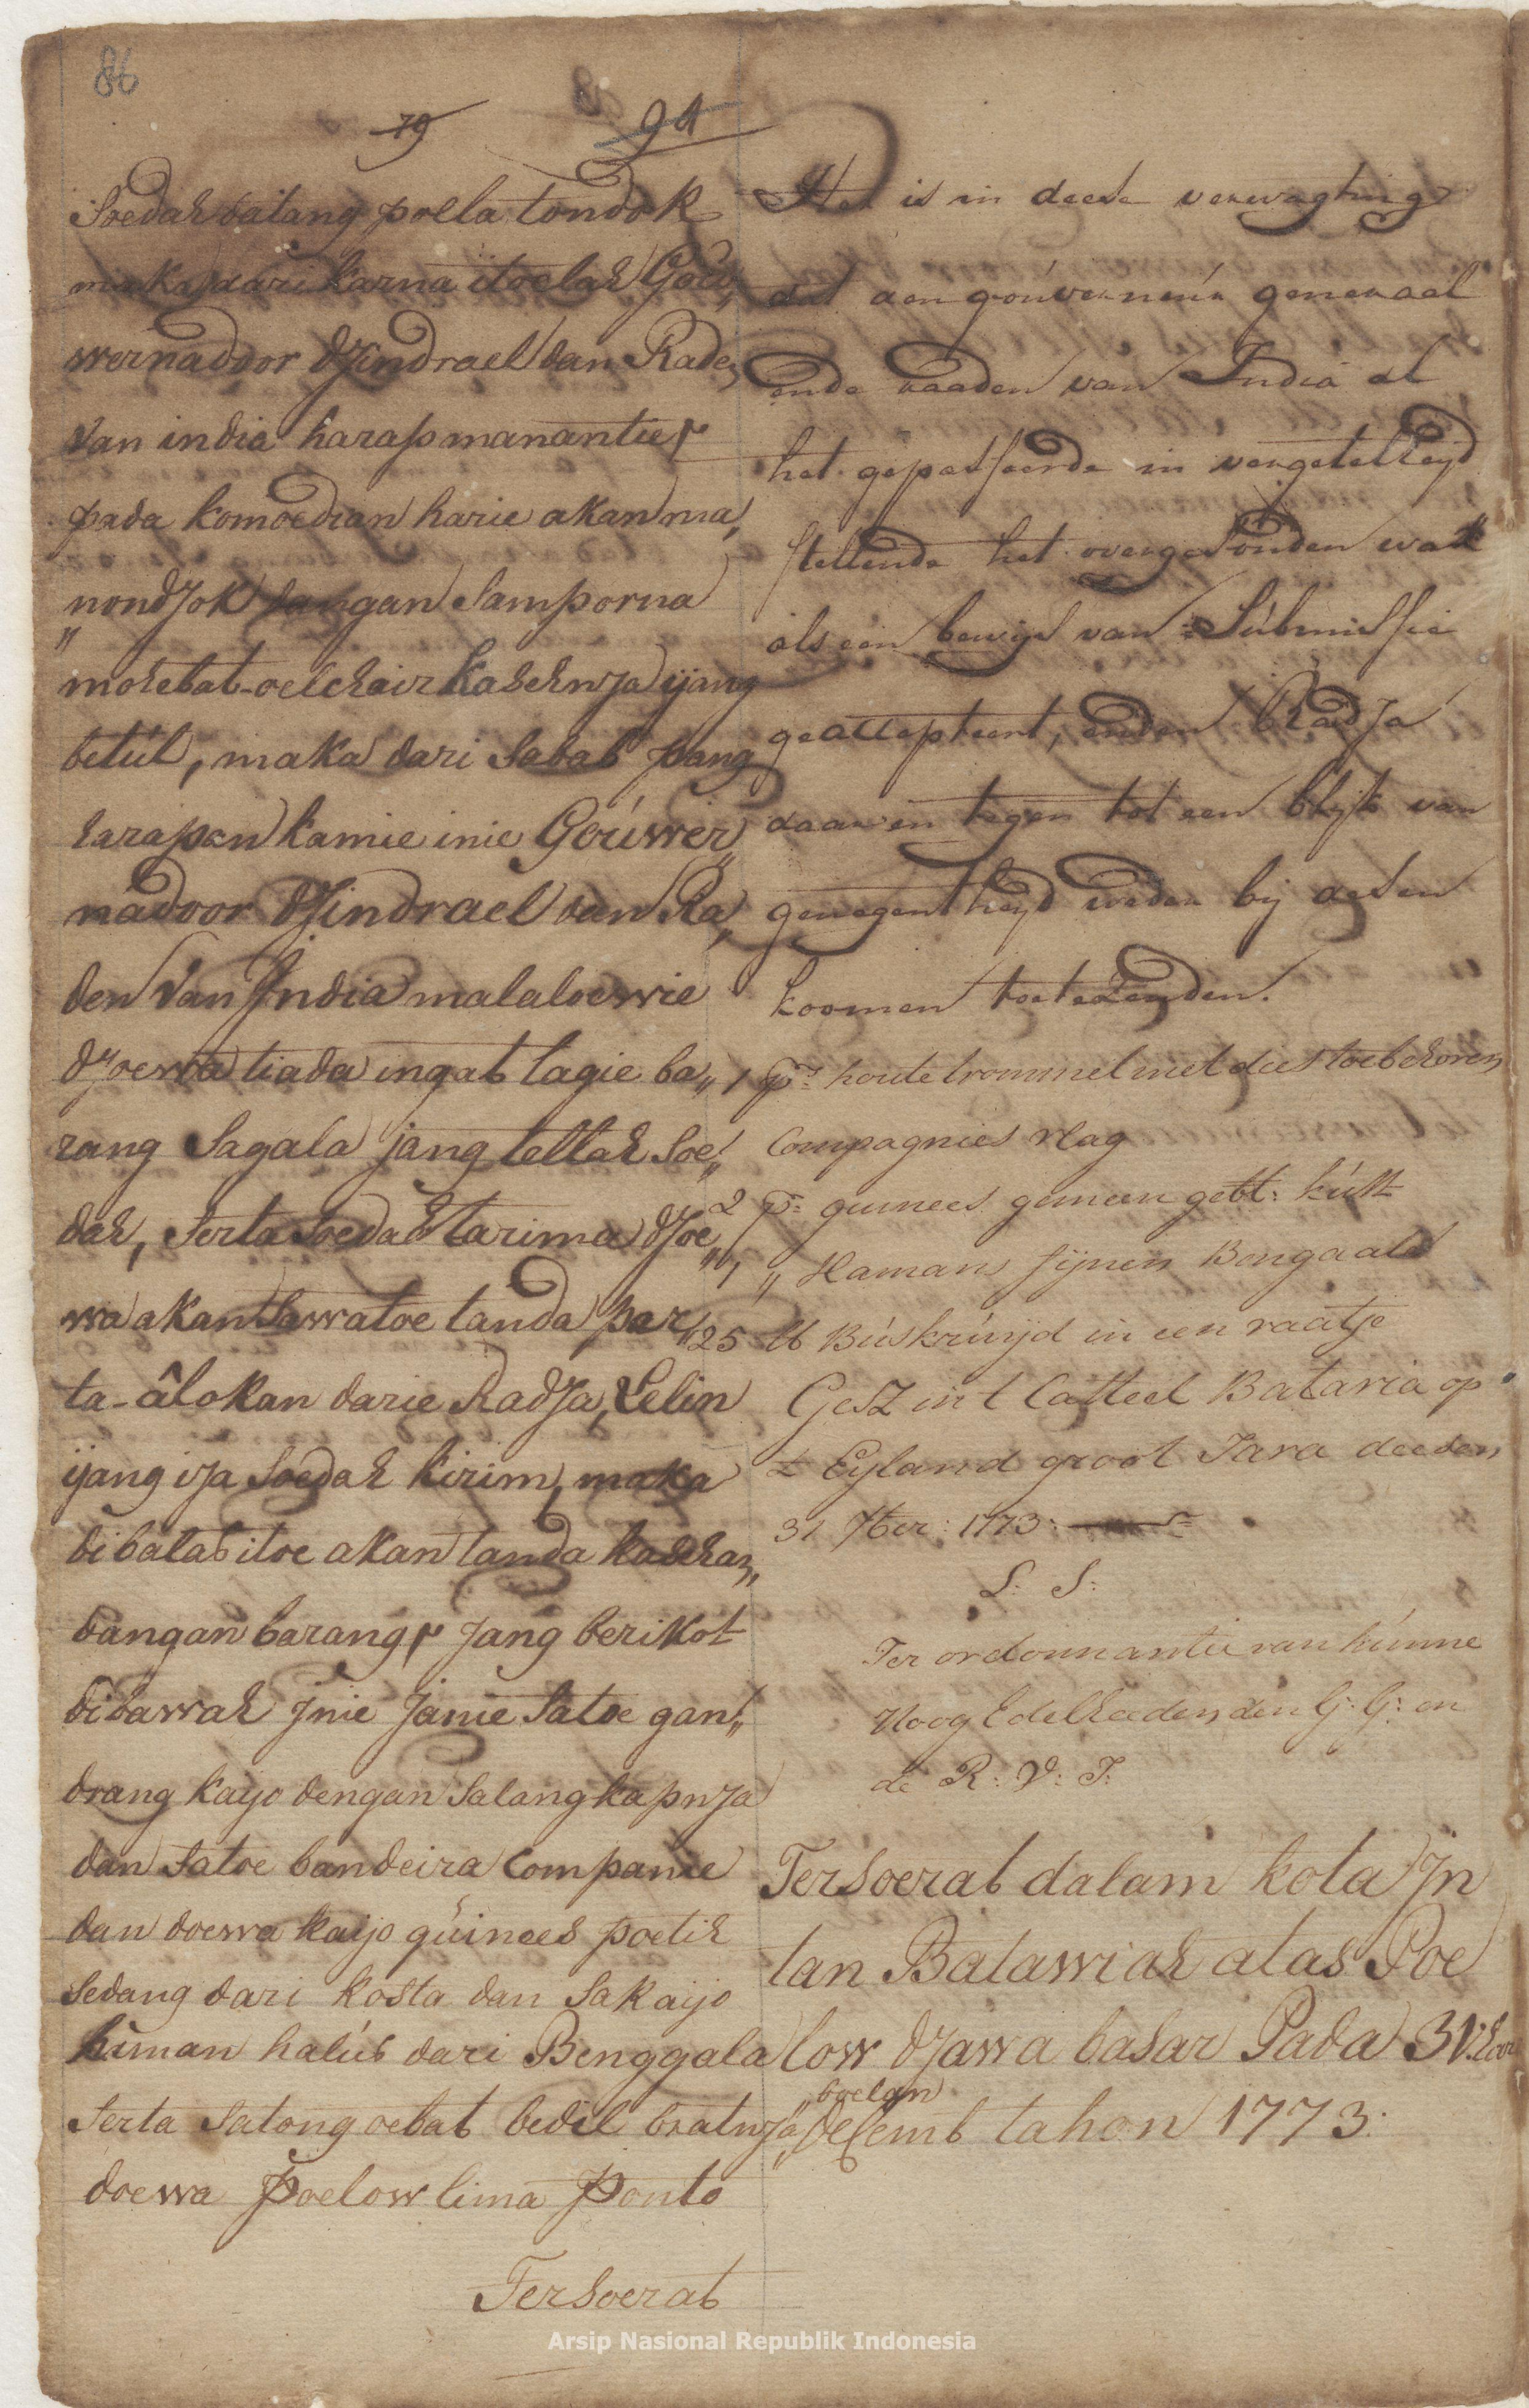 86
79
94
Soedah datang poella tondok
maka dari karna itoelah Gou„
wernadoor dJindrael dan Rade„
van india harap manantie r
pada komoedian harie akan ma„
„nondJok dangan Samporna
mohebat oelehair kasehnJa ijang
betúl, maka dari Sabab pang
harapan kamie inie Goúwer„
nadoor dJindrael dan Ra„
den van India malaloewie
dJoewa tiada ingat lagie ba„
rang Sagala jang tellah Soe„
dah, Serta Soedah tarima dJoe„
wa akan Sawatoe tanda par„
ta-âlokan darie RadJa, Lelin
ijang iJa Soedah kirim, maka
di balas itoe akan tanda kasehan„
dangan barang r Jang berikot
dibawah Jnie Janie Satoe gan„
drang kaijo dengan SalangkapnJa
dan Satoe bandeira Companie
dan doewa kaijo gúinees poetih
Sedang dari kosta dan Sakaijo
haman halús dari Benggala
Serta Satong oebat bedil bratnJa„
doewa Poelow lima Ponto
Tersoerat
Het is in deese verwagting
dat den goúverneúr generaal
ende raaden van India al
het gepasseerde in vergetelheijd
stellende het overgesonden was
als een bewijs van Súbmissie
geaccepteert, ende den RadJa
daar en tegen tot een blijk van
genegentheijd weder bij desen
koomen toetezenden.
1 Ps houte trommel met dies toebehoren
Compagnies vlag
2 Ps guinees gemeen gebl: kúst
1 „ Hamans fijnen Bengaals
25 lb Búskrúijd in een vaatje
Gesz in 't Casteel Batavia op
't Eyland groot Java deesen
31 Xber: 1773:
L: S:
Ter ordonnantie van húnne
Hoog Edelheeden den G: G: en
de R: V: I:
Tersoerat dalam kota Jn
tan Batawiah atas Poe
low dJawa basar Pada 31: hari
boelan
Desemb tahon 1773:
Arsip Nasional Republik Indonesia